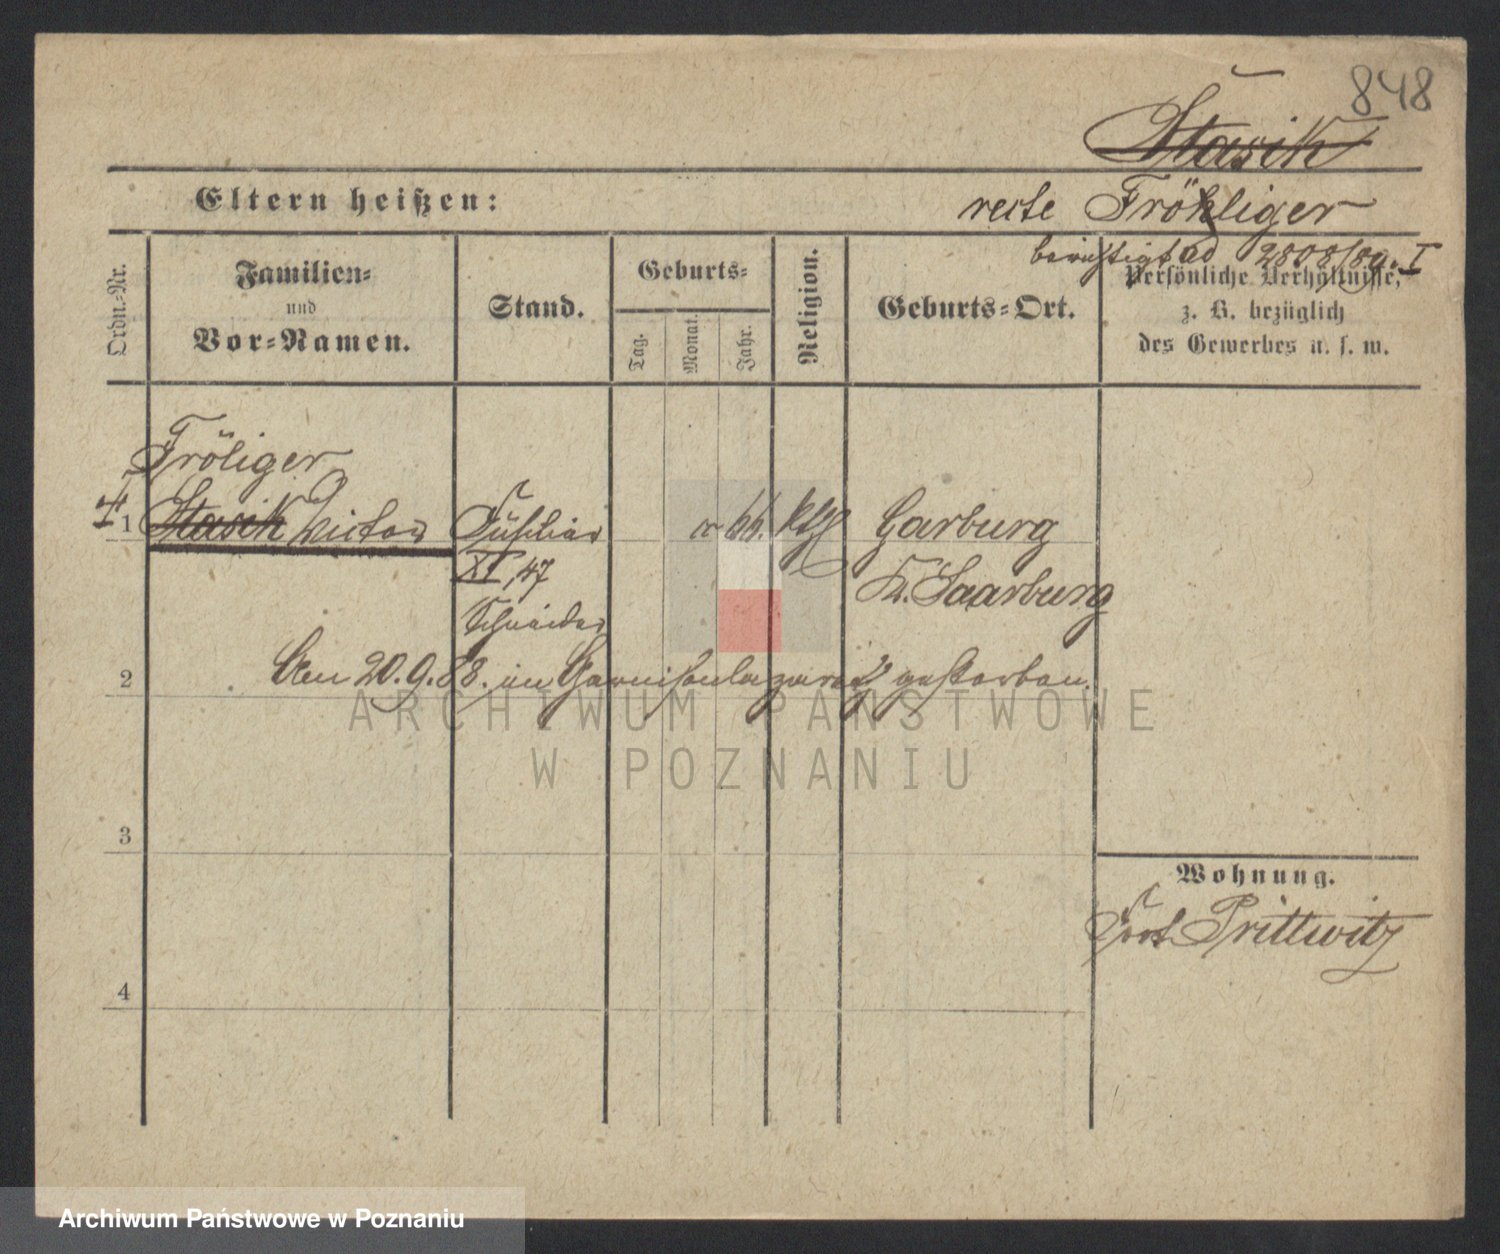 848
Stasik
Eltern heißen:
recte Fröhliger
berichtigt ad 2808/89. I
Ordn.-Nr.
Familien-
und
Vor-Namen.
Stand.
Geburts-
Tag.
Monat.
Jahr.
Religion.
Geburts-Ort.
Persönliche Verhältnisse,
z. B. bezüglich
des Gewerbes u. s. w.
Fröliger
1 Stasik Victor Füsilier 66. kth Garburg
XI/47 Kr. Saarburg
Schneider
2 Am 20.9.88. im Garnisonlazareth gestorben.
3
Wohnung.
Fort Prittwitz
4
ARCHIWUM PAŃSTWOWE
W POZNANIU
Archiwum Państwowe w Poznaniu